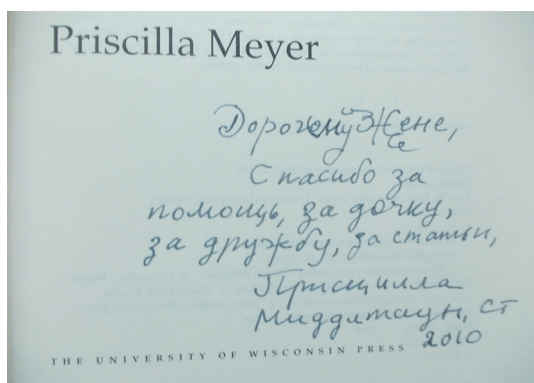 Priscilla Meyer
Дорогому Жене,
Спасибо за
помощь, за дочку,
за дружбу, за статьи,
Присцилла
Миддлтаун, СТ
2010
THE UNIVERSITY OF WISCONSIN PRESS